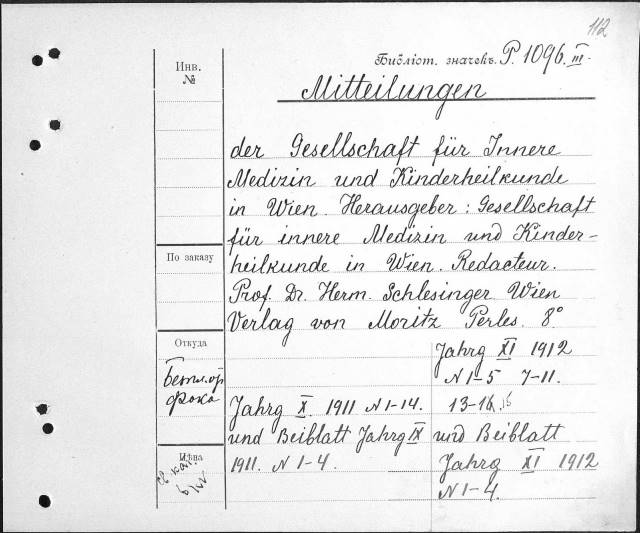 112
Библіот. значекъ. P. 1096. III.
Инв.
№
Mitteilungen
der Gesellschaft für Innere
Medizin und Kinderheilkunde
in Wien. Herausgeber: Gesellschaft
für innere Medizin und Kinder-
heilkunde in Wien. Redacteur.
По заказу
Prof. Dr. Herm. Schlesinger Wien
Verlag von Moritz Perles. 8°
Откуда
Jahrg XI 1912
N 1-5 7-11.
13-16
Jahrg X. 1911 N 1-14.
und Beiblatt Jahrg IX
1911. N 1-4.
und Beiblatt
Jahrg XI 1912
N 1-4.
Цѣна